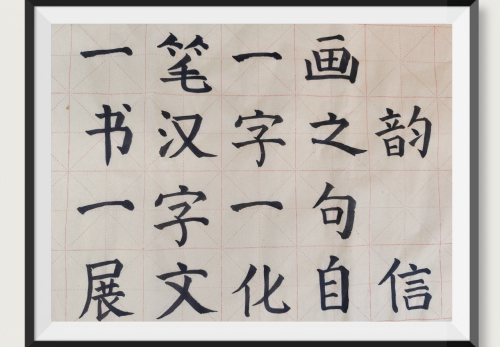 一笔一画
书汉字之韵
一字一句
展文化自信